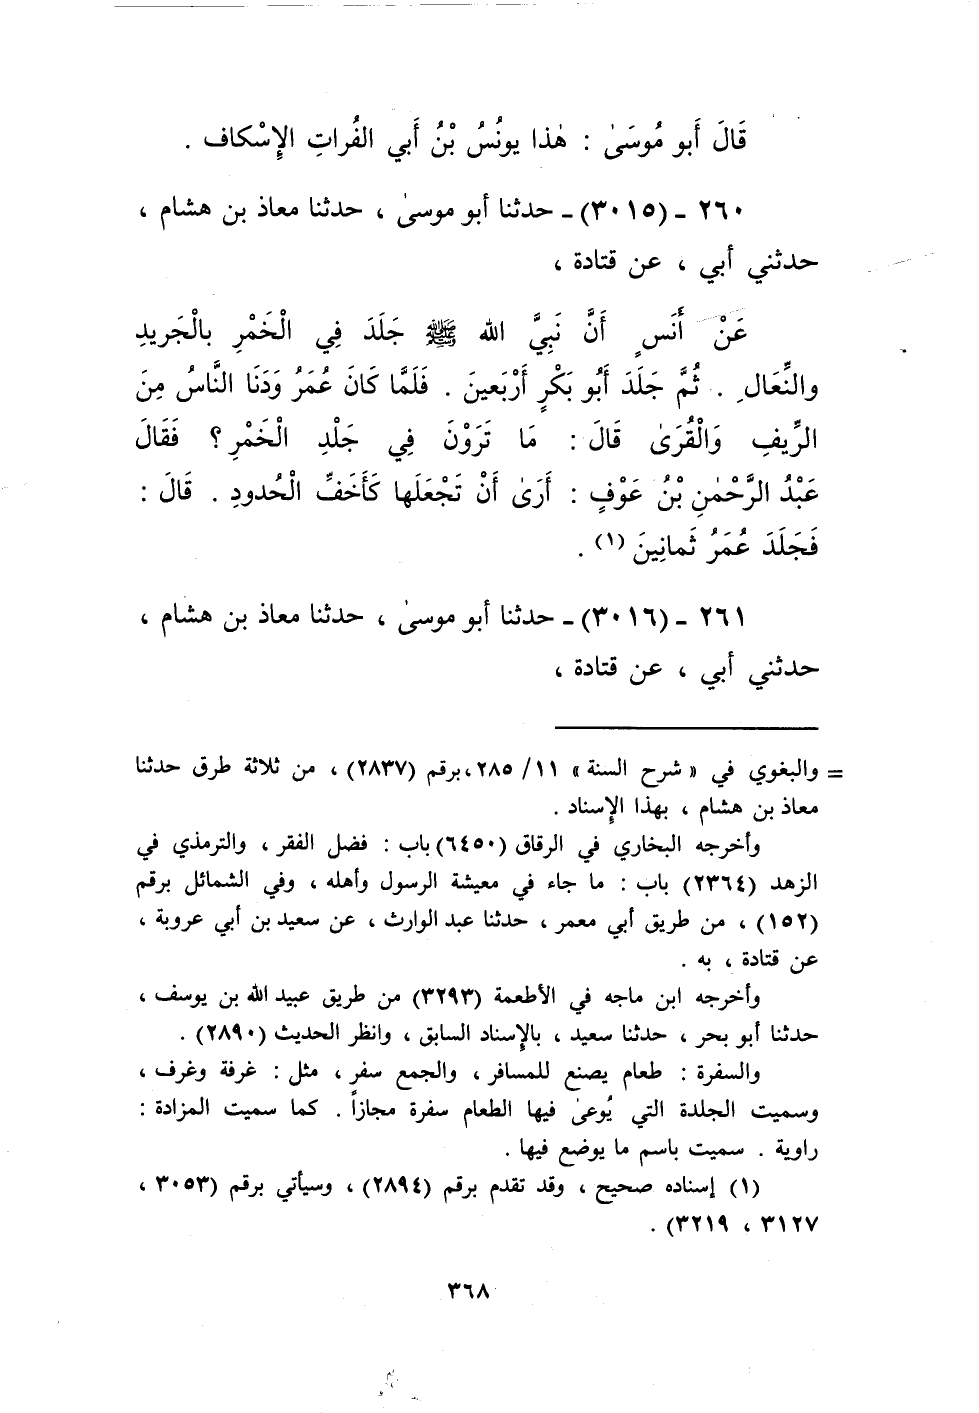 قَالَ أَبو مُوسَىٰ : هٰذا يونُسُ بْنُ أَبي الفُراتِ الإِسْكاف .
٢٦٠ ـ (٣٠١٥) ـ حدثنا أبو موسىٰ ، حدثنا معاذ بن هشام ،
حدثني أبي ، عن قتادة ،
عَنْ أَنَسٍ أَنَّ نَبِيَّ الله ﷺ جَلَدَ فِي الْخَمْرِ بالْجَريدِ
والنِّعَالِ . ثُمَّ جَلَدَ أَبُو بَكْرٍ أَرْبَعينَ . فَلَمَّا كَانَ عُمَرُ وَدَنَا النَّاسُ مِنَ
الرِّيفِ وَالْقُرَىٰ قَالَ : مَا تَرَوْنَ فِي جَلْدِ الْخَمْرِ ؟ فَقَالَ
عَبْدُ الرَّحْمٰنِ بْنُ عَوْفٍ : أَرَىٰ أَنْ تَجْعَلَها كَأَخَفِّ الْحُدودِ . قَالَ :
فَجَلَدَ عُمَرُ ثَمانِينَ (١) .
٢٦١ ـ (٣٠١٦) ـ حدثنا أبو موسىٰ ، حدثنا معاذ بن هشام ،
حدثني أبي ، عن قتادة ،
= والبغوي في « شرح السنة » ١١/ ٢٨٥، برقم (٢٨٣٧) ، من ثلاثة طرق حدثنا
معاذ بن هشام ، بهذا الإسناد .
وأخرجه البخاري في الرقاق (٦٤٥٠) باب : فضل الفقر ، والترمذي في
الزهد (٢٣٦٤) باب : ما جاء في معيشة الرسول وأهله ، وفي الشمائل برقم
(١٥٢) ، من طريق أبي معمر ، حدثنا عبد الوارث ، عن سعيد بن أبي عروبة ،
عن قتادة ، به .
وأخرجه ابن ماجه في الأطعمة (٣٢٩٣) من طريق عبيد الله بن يوسف ،
حدثنا أبو بحر ، حدثنا سعيد ، بالإسناد السابق ، وانظر الحديث (٢٨٩٠) .
والسفرة : طعام يصنع للمسافر ، والجمع سفر ، مثل : غرفة وغرف ،
وسميت الجلدة التي يُوعىٰ فيها الطعام سفرة مجازاً . كما سميت المزادة :
راوية . سميت باسم ما يوضع فيها .
(١) إسناده صحيح ، وقد تقدم برقم (٢٨٩٤) ، وسيأتي برقم (٣٠٥٣ ،
٣١٢٧ ، ٣٢١٩) .
٣٦٨